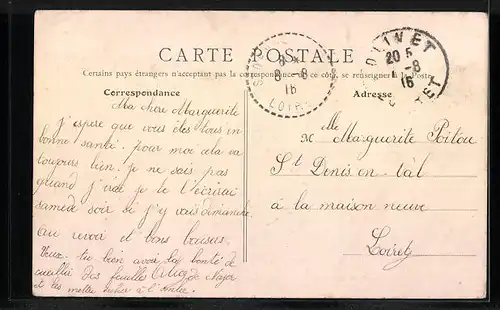 CARTE POSTALE
Certains pays étrangers n'acceptant pas la correspondance de ce côté, se renseigner à la Poste
Correspondance
Adresse
OLIVET
20 5
8
16
LOIRET
8-8
16
LOIRET
Ma chere Marguerite
j'espere que vous êtes tous en
bonne santé. pour moi cela va
toujours bien. je ne sais pas
quand j'irai je te l'écrirai
samedi soir si j'y vais dimanche
au revoir et bons baisers
Veux-tu bien avoir la bonté de
cueillir des feuilles de
et les mettre à l'
Mlle Marguerite Poitou
St Denis en Val
à la maison neuve
Loiret